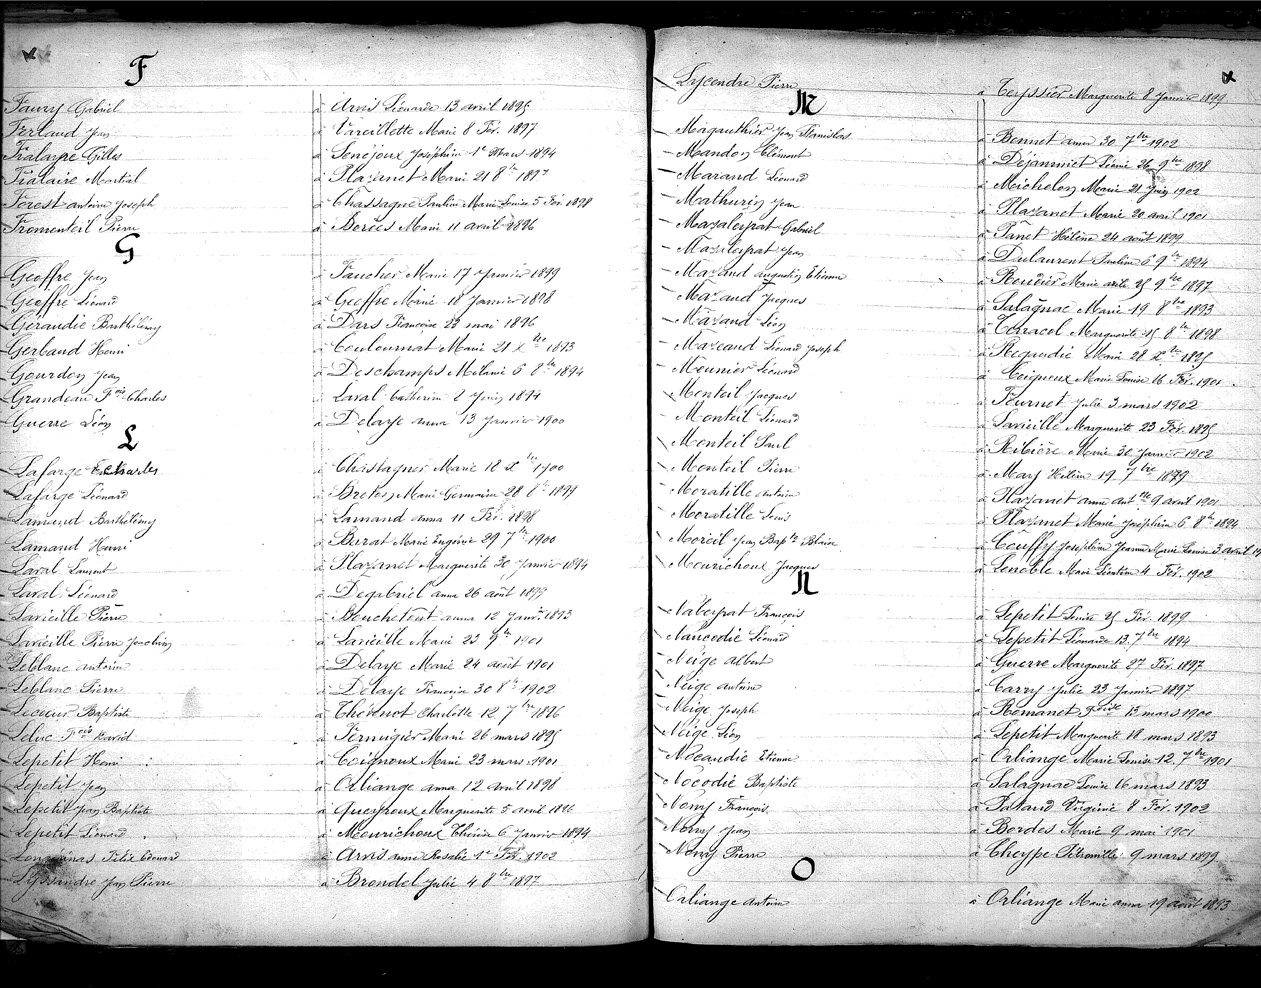 F
Faury Gabriel à Arvis Léonarde 13 avril 1895
Ferland Jean à Vareillette Marie 8 Fév. 1897
Fialarpe Gilles à Senéjoux Joséphine 1er Mars 1894
Fialaire Martial à Plazanet Marie 21 8bre 1897
Forest antoine Joseph à Chassagne Pauline Marie Louise 5 Fév. 1898
Fromenteil Pierre à Bories Marie 11 avril 1896
G
Geoffre Jean à Faucher Marie 17 Janvier 1899
Geoffre Léonard à Geoffre Marie 18 Janvier 1898
Geraudie Barthélémy à Dars Françoise 23 mai 1896
Gerbaud Henri à Couloumat Marie 21 Xbre 1893
Gourdon Jean à Deschamps Mélanie 6 8bre 1894
Grandeau Fois Charles à Laval Catherine 2 Juin 1894
Guerre Léon à Delarse anna 13 Janvier 1900
L
Lafarge Charles à Chastagner Marie 18 Xbre 1900
Lafarge Léonard à Bretes Marie Germaine 28 8bre 1899
Lamaud Barthélémy à Lamaud anna 11 Fév. 1898
Lamaud Henri à Burat Marie Eugénie 29 7bre 1900
Laval Laurent à Plazanet Marguerite 30 Janvier 1894
Laval Léonard à Degabriel anna 26 août 1899
Lavieille Pierre à anna 12 Janv. 1893
Lavieille Pierre Joachim à Lavieille Marie 23 9bre 1901
Leblanc antoine à Delarse Marie 24 août 1901
Leblanc Pierre à Delarse Françoise 30 8bre 1902
Lecoeur Baptiste à Thévenot Charlotte 12 7bre 1896
Leduc Fois David à Fernigier Marie 26 mars 1895
Lepetit Henri à Coignoux Marie 23 mars 1901
Lepetit Jean à Orliange anna 12 avril 1898
Lepetit Jean Baptiste à Queyroux Marguerite 5 avril 1896
Lepetit Léonard à Mourichoux Thérèse 6 Janvier 1894
Félix Edouard à Arvis anne Rosalie 1er Fév. 1902
Lyssandre Jean Pierre à Brondel Julie 4 8bre 1897
Lycendre Pierre à Teyssier Marguerite 8 Janvier 1899
M
Magauthier Jean Stanislas à Bonnet anna 30 7bre 1902
Mandon Clément à Déjammet Léonie 26 9bre 1898
Marand Léonard à Michelon Marie 21 Juin 1902
Mathurin Jean à Plazanet Marie 20 avril 1901
Mazaleyrat Gabriel à Panet Hélène 24 août 1899
Mazaleyrat Jean à Dulaurent Pauline 6 9bre 1894
Mazaud augustin Etienne à Roudier Marie 25 9bre 1897
Mazaud Jacques à Salagnac Marie 19 8bre 1893
Mazaud Léon à Terracol Marguerite 15 8bre 1898
Mazeaud Léonard Joseph à Requedie Marie 28 Xbre 1895
Meunier Léonard à Coigneux Marie Louise 16 Fév. 1901
Monteil Jacques à Fournet Julie 3 mars 1902
Monteil Léonard à Lavieille Marguerite 23 Fév. 1895
Monteil Paul à Ribière Marie 30 Janvier 1902
Monteil Pierre à Mary Hélène 19 7bre 1899
Moratille antoine à Plazanet anne antte 9 avril 1901
Moratille Louis à Plazanet Marie Joséphine 6 8bre 1894
Moreil Jean Bapte Blaise à Couffy Joséphine Jeanne Marie Louise 3 avril 19
Mourichoux Jacques à Lenoble Marie Léontine 4 Fév. 1902
N
Naberrat François à Lepetit Louise 25 Fév. 1899
Naucodie Léonard à Lepetit Léonarde 13 7bre 1894
Neige albert à Guerre Marguerite 27 Fév. 1897
Neige antoine à Carry Julie 23 Janvier 1897
Neige Joseph à Romanet Foise 13 mars 1900
Neige Léon à Lepetit Marguerite 18 mars 1893
Nocaudie Etienne à Orliange Marie Louise 12 7bre 1901
Nocodie Baptiste à Salagnac Louise 16 mars 1893
Nony François à Pataud Virginie 8 Fév. 1902
Nony Jean à Bordes Marie 9 mai 1901
Nony Pierre à Cheype Pétronille 9 mars 1899
O
Orliange antoine à Orliange Marie anna 19 août 1893